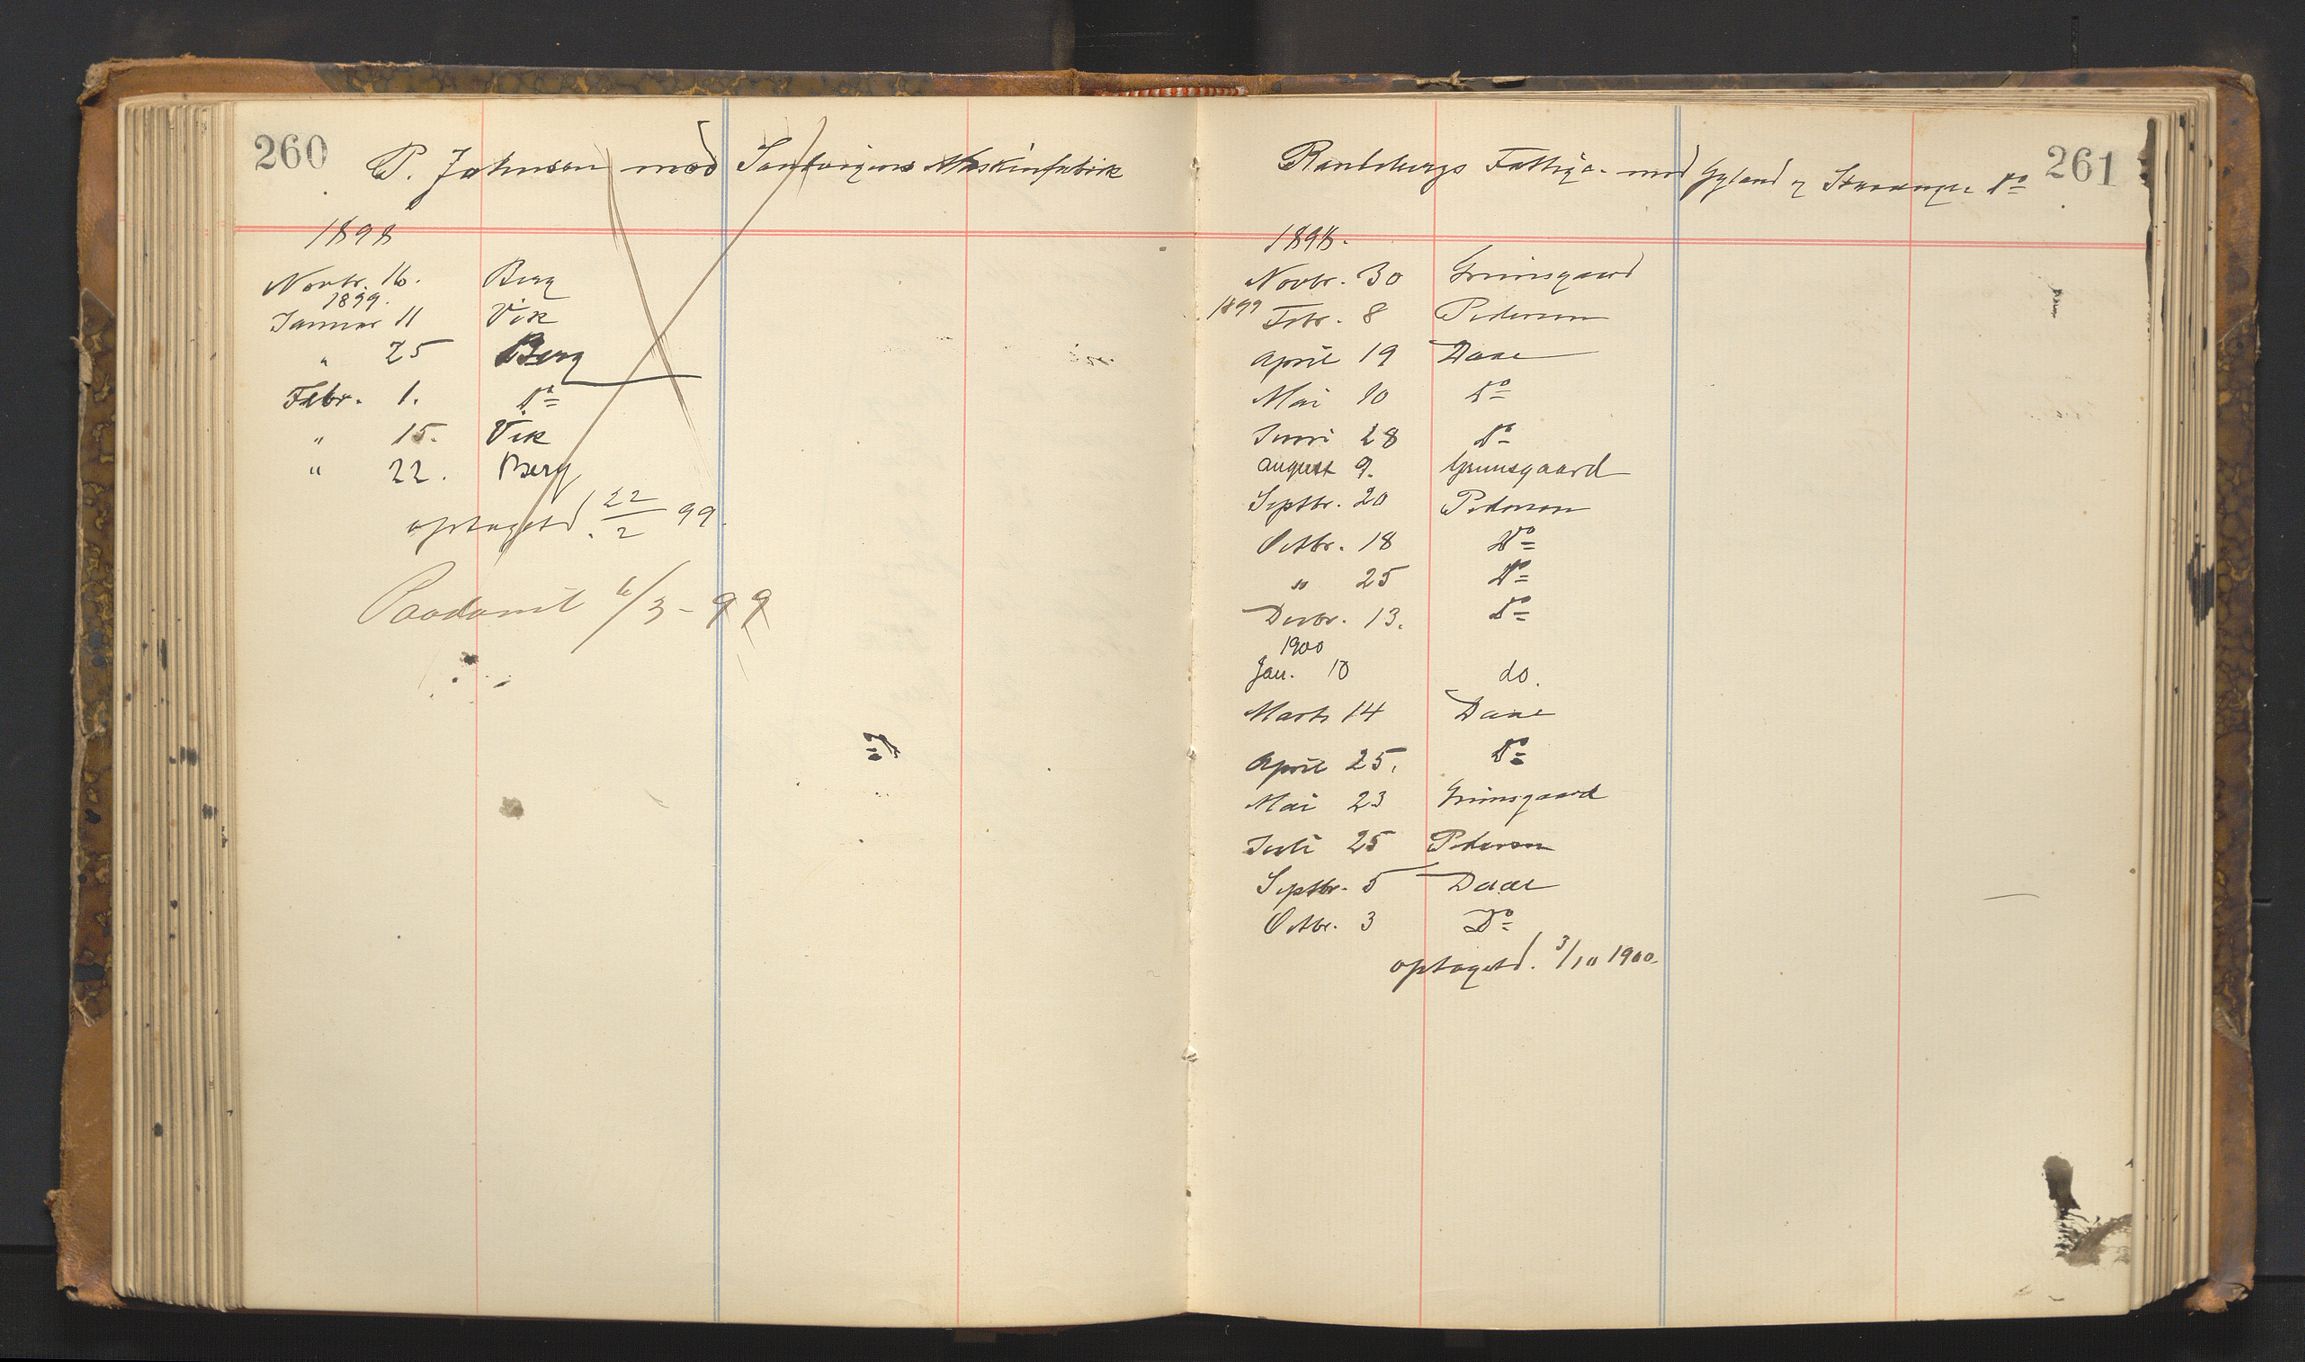 260
P. Johnsen mod Sandvigens Maskinfabrik
1898
Novbr. 16. Berg
1899.
Januar 11 Vik
" 25 Berg
Febr. 1. Do
" 15. Vik
" 22. Berg
optaget d. 22/2 99.
Paadømt 6/3-99
261
Randebergs Fattigc. mod Gyland & Stavanger Do
1898.
Novbr. 30 Grimsgaard
1899 Febr. 8 Pedersen
April 19 Daae
Mai 10 Do
Juni 28 Do
August 9. Grimsgaard
Septbr. 20 Pedersen
Octbr. 18 Do
" 25 Do
Decbr. 13. Do
1900
Jan. 10 do.
Marts 14 Daae
April 25. Do
Mai 23 Grimsgaard
Juli 25 Pedersen
Septbr. 5 Daae
Octbr. 3 Do
optaget d. 3/10 1900.